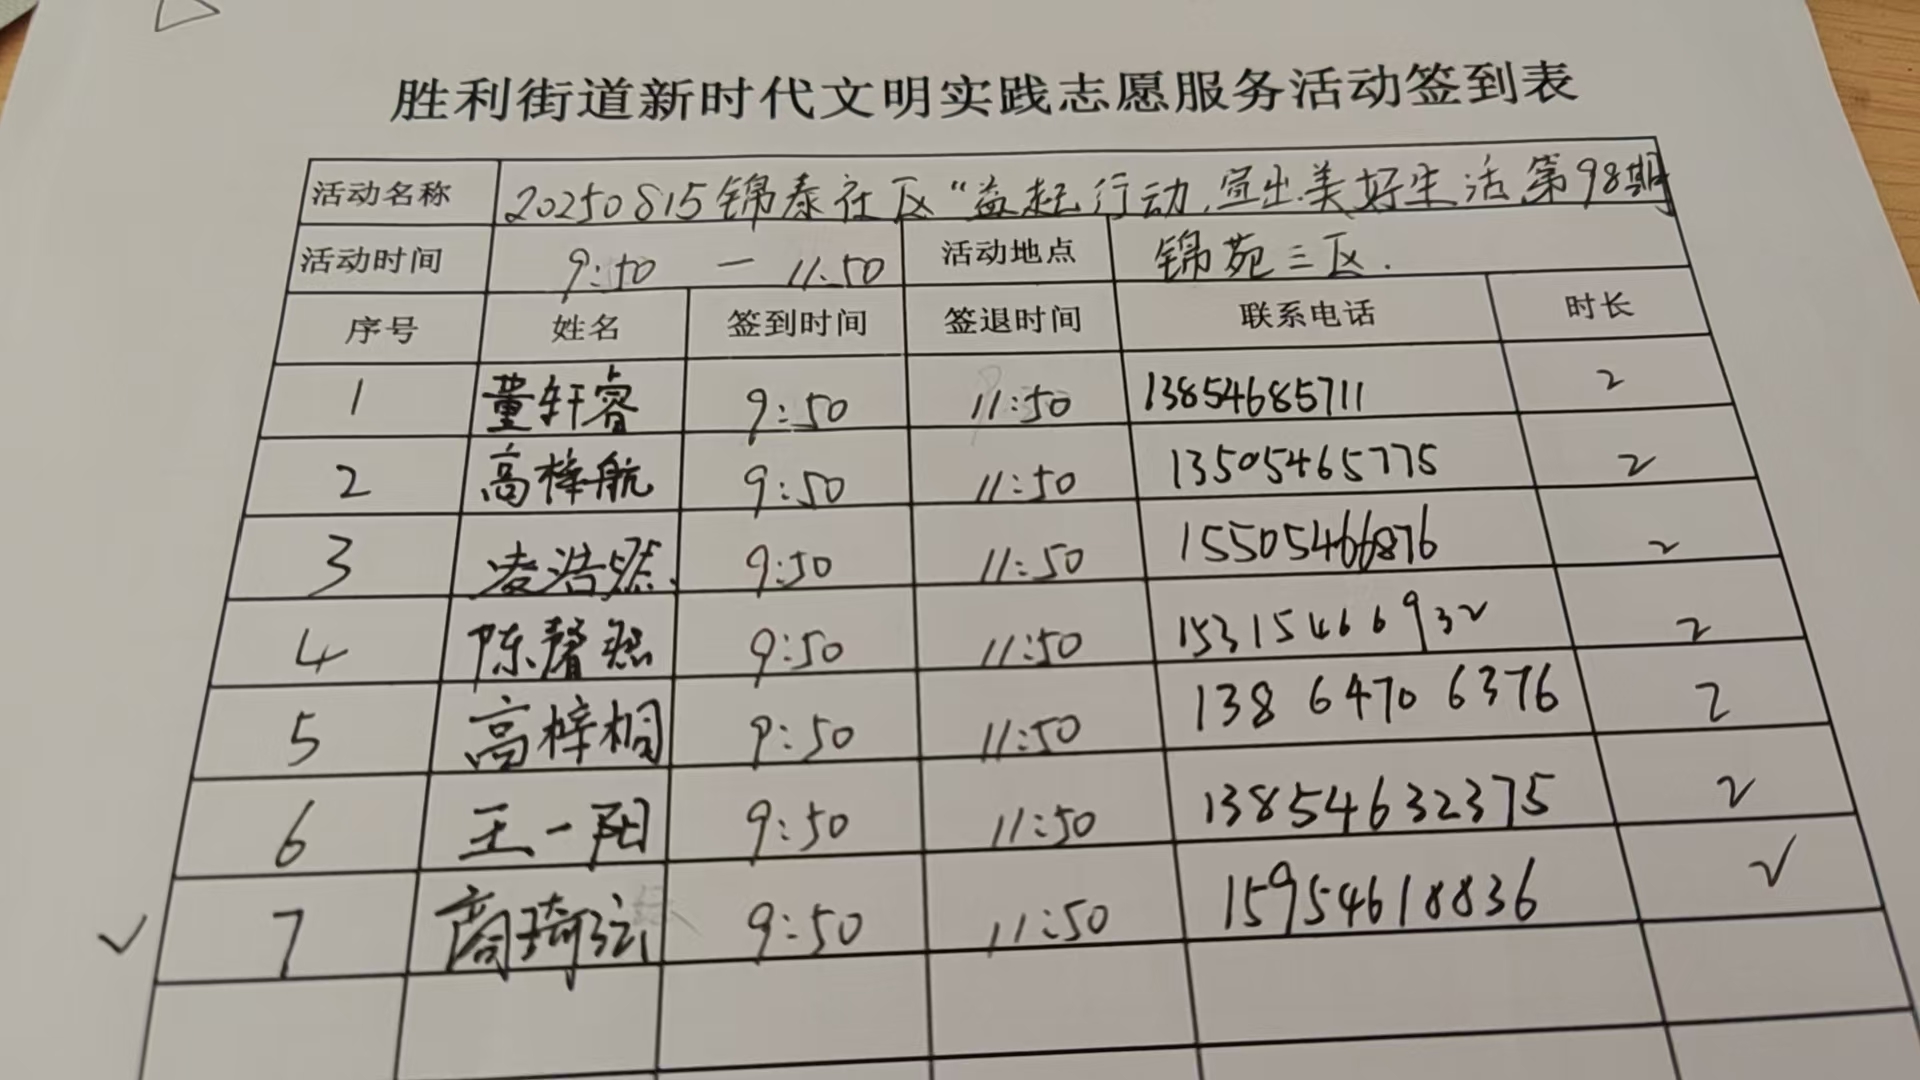 胜利街道新时代文明实践志愿服务活动签到表
活动名称 20250815锦泰社区“益起行动,宣出美好生活第98期
活动时间 9:50 — 11:50 活动地点 锦苑三区.
序号 姓名 签到时间 签退时间 联系电话 时长
1 董轩睿 9:50 11:50 13854685711 2
2 高梓航 9:50 11:50 13505465775 2
3 凌浩然 9:50 11:50 15505466876 2
4 陈馨 9:50 11:50 15315466932 2
5 高梓桐 9:50 11:50 138 6470 6376 2
6 王一阳 9:50 11:50 13854632375 2
✓ 7 商琦 9:50 11:50 15954618836 ✓